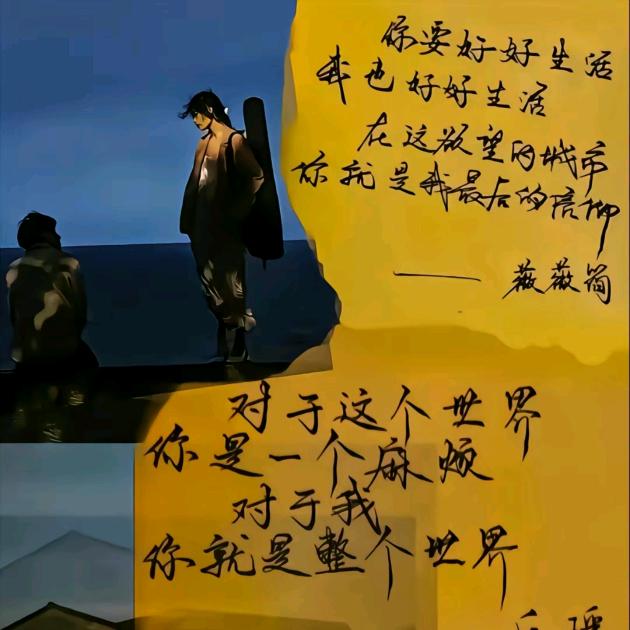 你要好好生活
我也好好生活
在这欲望的城市
你就是我最后的信仰
—— 薇薇筠
对于这个世界
你是一个麻烦
对于我
你就是整个世界